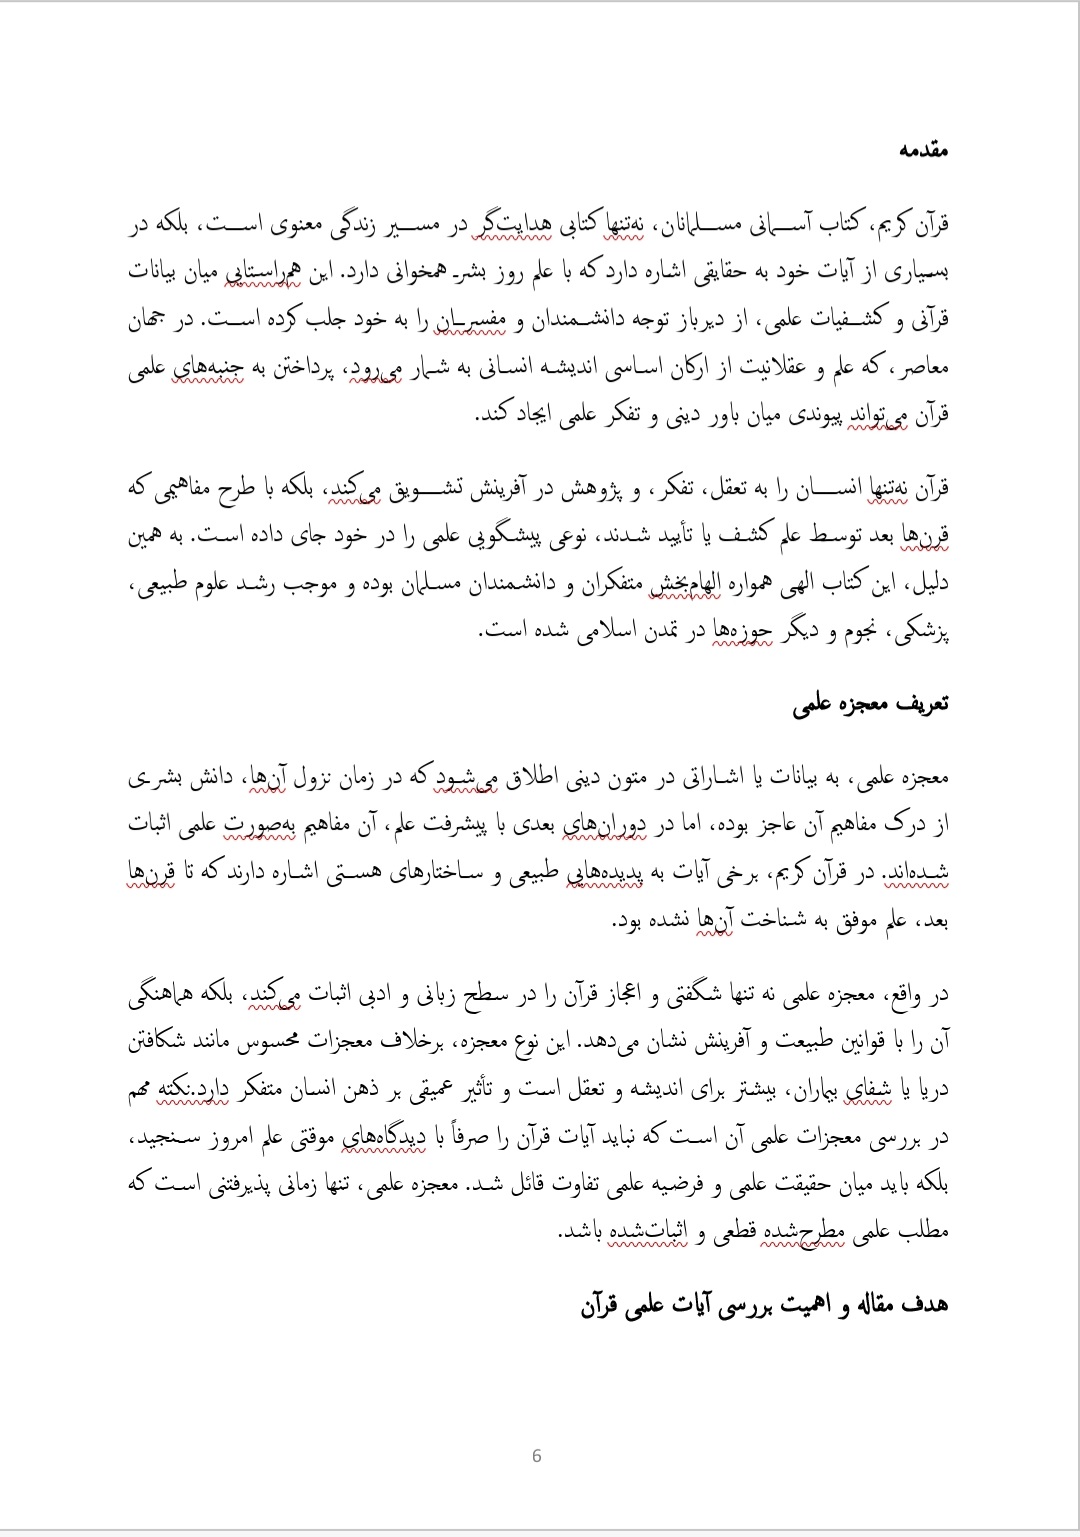 مقدمه
قرآن کریم، کتاب آسمانی مسلمانان، نه‌تنها کتابی هدایت‌گر در مسیر زندگی معنوی است، بلکه در
بسیاری از آیات خود به حقایقی اشاره دارد که با علم روز بشر همخوانی دارد. این هم‌راستایی میان بیانات
قرآنی و کشفیات علمی، از دیرباز توجه دانشمندان و مفسران را به خود جلب کرده است. در جهان
معاصر، که علم و عقلانیت از ارکان اساسی اندیشه انسانی به شمار می‌رود، پرداختن به جنبه‌های علمی
قرآن می‌تواند پیوندی میان باور دینی و تفکر علمی ایجاد کند.
قرآن نه‌تنها انسان را به تعقل، تفکر، و پژوهش در آفرینش تشویق می‌کند، بلکه با طرح مفاهیمی که
قرن‌ها بعد توسط علم کشف یا تأیید شدند، نوعی پیشگویی علمی را در خود جای داده است. به همین
دلیل، این کتاب الهی همواره الهام‌بخش متفکران و دانشمندان مسلمان بوده و موجب رشد علوم طبیعی،
پزشکی، نجوم و دیگر حوزه‌ها در تمدن اسلامی شده است.
تعریف معجزه علمی
معجزه علمی، به بیانات یا اشاراتی در متون دینی اطلاق می‌شود که در زمان نزول آن‌ها، دانش بشری
از درک مفاهیم آن عاجز بوده، اما در دوران‌های بعدی با پیشرفت علم، آن مفاهیم به‌صورت علمی اثبات
شده‌اند. در قرآن کریم، برخی آیات به پدیده‌هایی طبیعی و ساختارهای هستی اشاره دارند که تا قرن‌ها
بعد، علم موفق به شناخت آن‌ها نشده بود.
در واقع، معجزه علمی نه تنها شگفتی و اعجاز قرآن را در سطح زبانی و ادبی اثبات می‌کند، بلکه هماهنگی
آن را با قوانین طبیعت و آفرینش نشان می‌دهد. این نوع معجزه، برخلاف معجزات محسوس مانند شکافتن
دریا یا شفای بیماران، بیشتر برای اندیشه و تعقل است و تأثیر عمیقی بر ذهن انسان متفکر دارد.نکته مهم
در بررسی معجزات علمی آن است که نباید آیات قرآن را صرفاً با دیدگاه‌های موقتی علم امروز سنجید،
بلکه باید میان حقیقت علمی و فرضیه علمی تفاوت قائل شد. معجزه علمی، تنها زمانی پذیرفتنی است که
مطلب علمی مطرح‌شده قطعی و اثبات‌شده باشد.
هدف مقاله و اهمیت بررسی آیات علمی قرآن
6